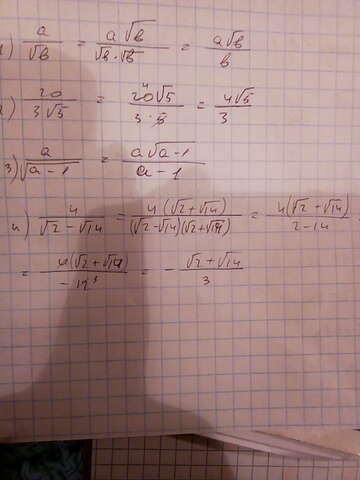 1) a/√b = a√b/(√b·√b) = a√b/b
2) 20/(3√5) = 20√5/(3·5) = 4√5/3
3) a/√(a-1) = a√(a-1)/(a-1)
4) 4/(√2-√14) = 4(√2+√14)/((√2-√14)(√2+√14)) = 4(√2+√14)/(2-14)
= 4(√2+√14)/(-12) = -(√2+√14)/3